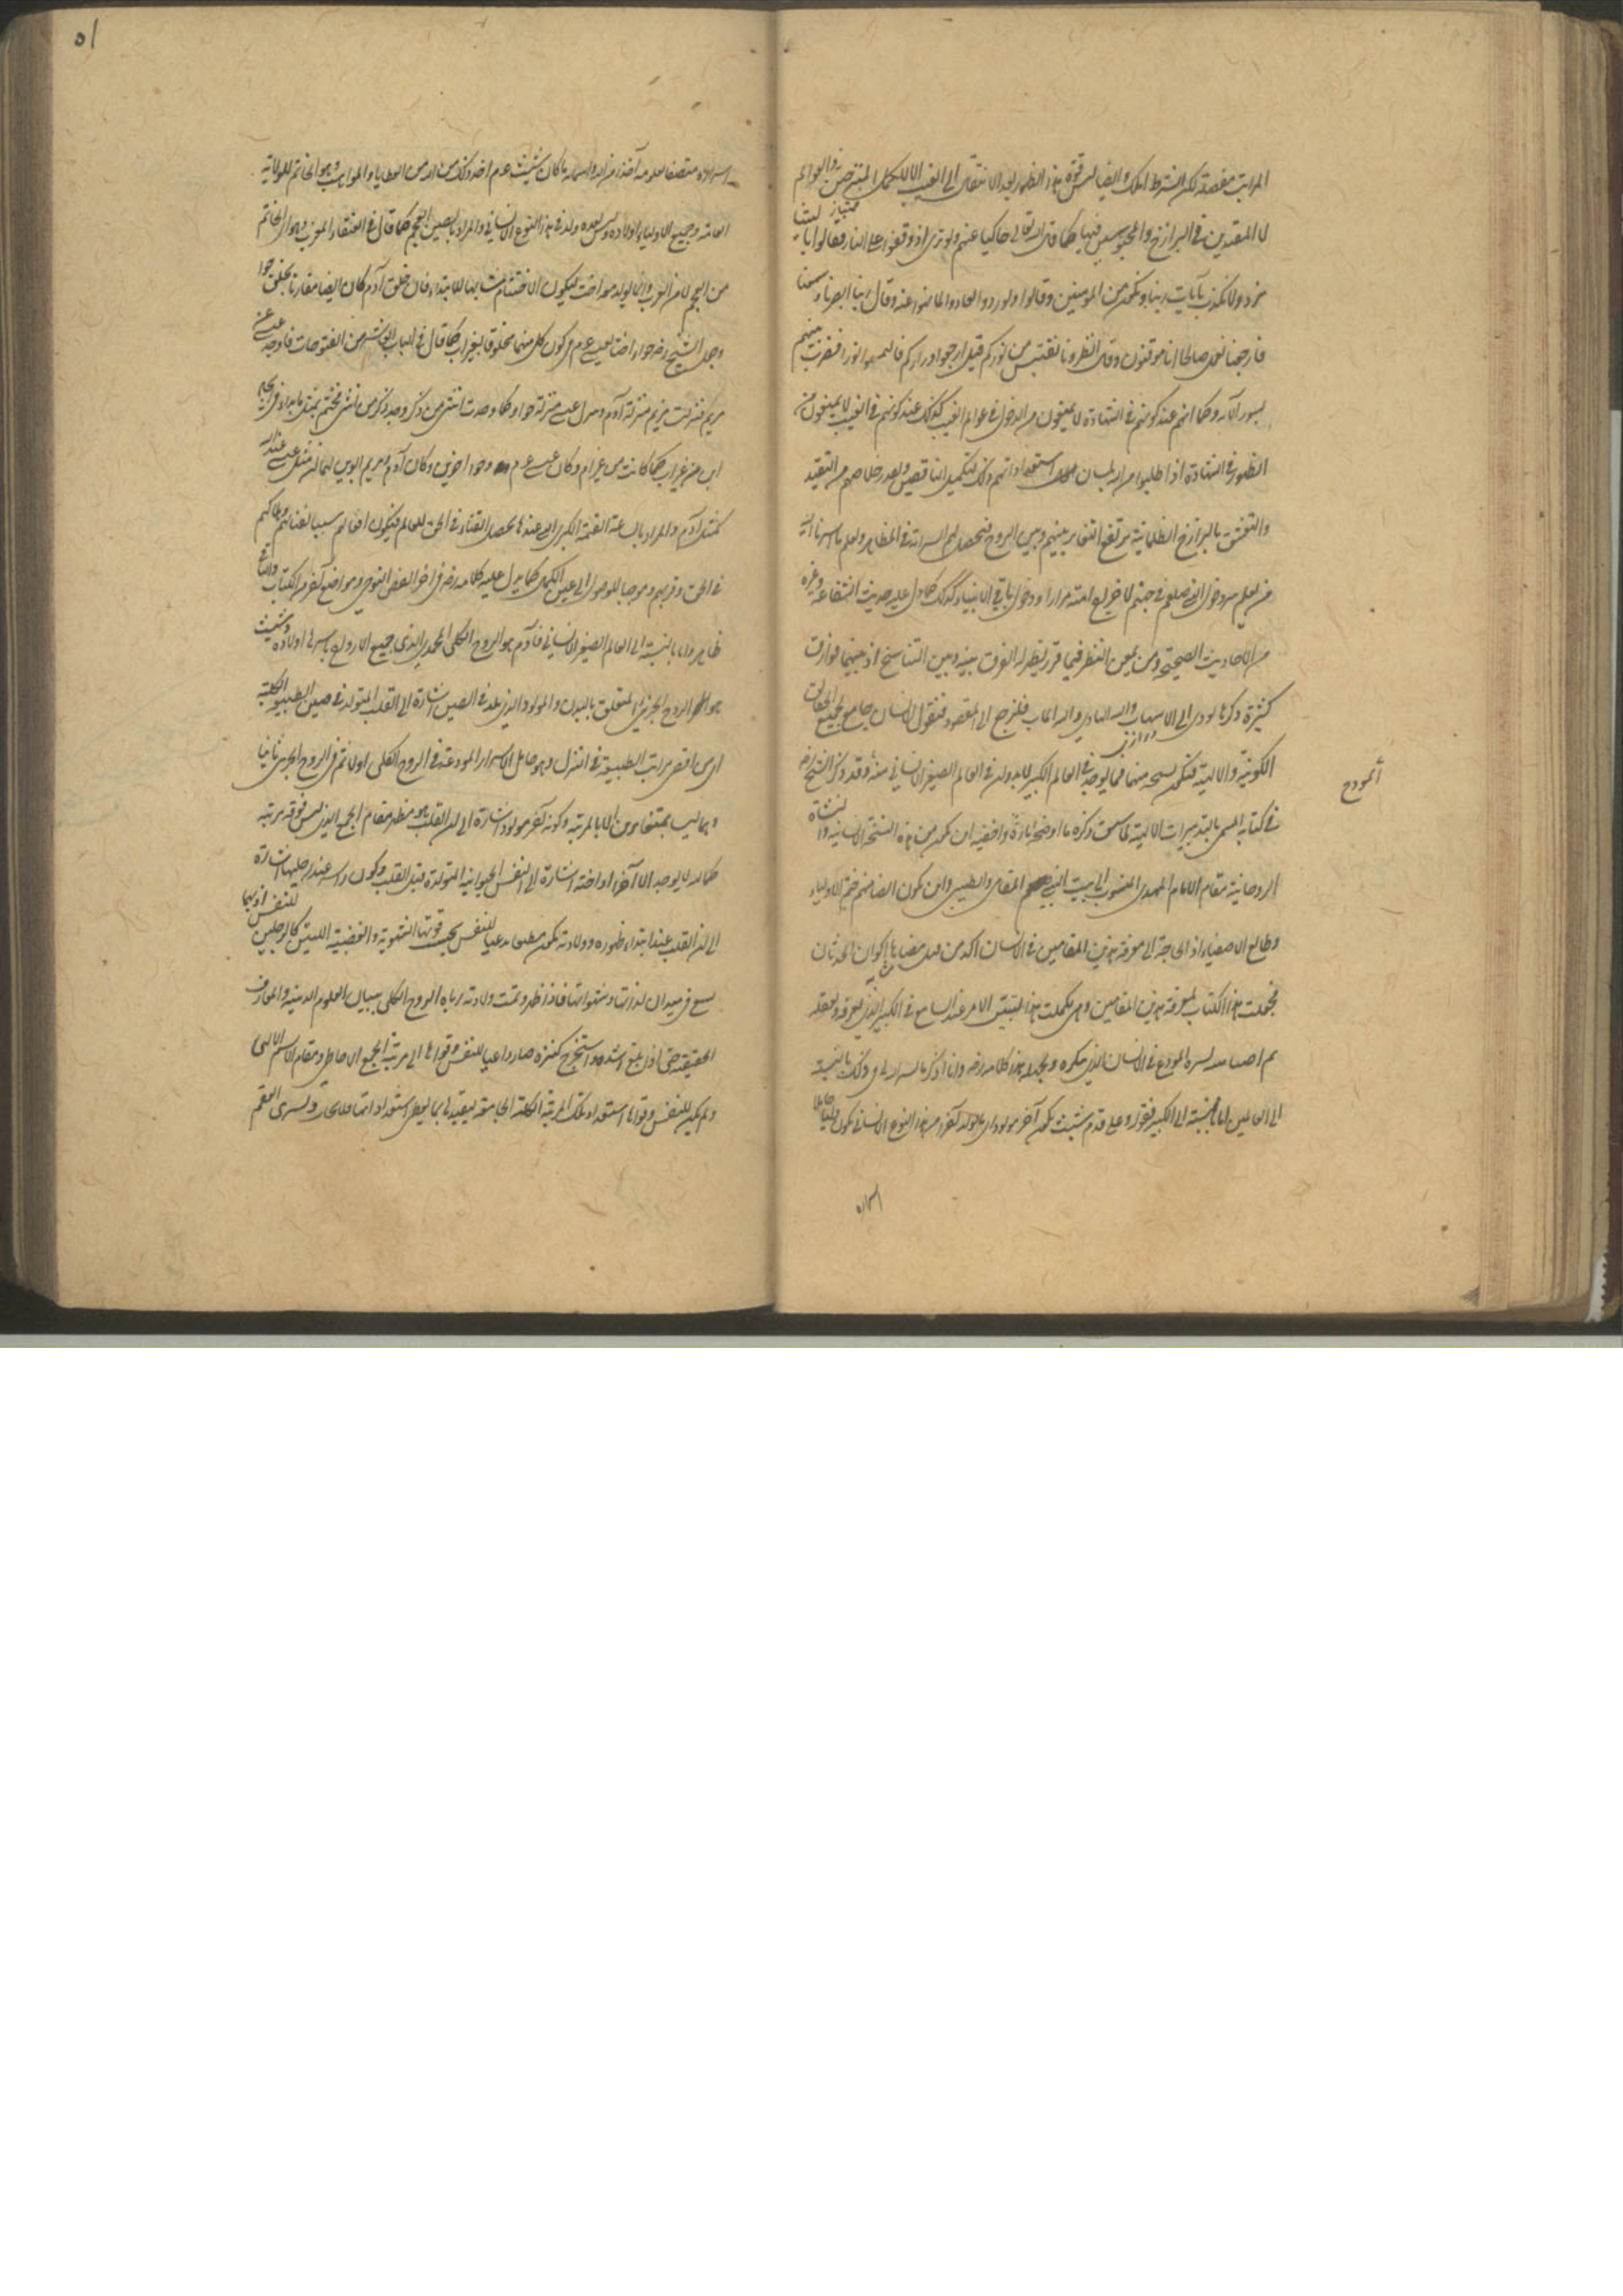 المراتب مفصلة لكن بشرط الملك وايضا ليس قوة هذا الظهور بعد الانتقال الى الغيب الا للكمل المسرحين في العوالم
لا المقيدين في البرازخ والمحبوسين فيها كما قال الله تعالى حاكيا عنهم ولو ترى اذ وقفوا على النار فقالوا يا ليتنا
نرد ولا نكذب بآيات ربنا ونكون من المؤمنين وقالوا ولو ردوا لعادوا لما نهوا عنه وقال ربنا ابصرنا وسمعنا
فارجعنا نعمل صالحا انا موقنون وقال انظرونا نقتبس من نوركم قيل ارجعوا وراءكم فالتمسوا نورا فضرب بينهم
بسور الآية وكما انهم عند كونهم في الشهادة لا يمنعون من الدخول في عوالم الغيب كذلك عند كونهم في الغيب لا يمنعون من
الظهور في الشهادة اذا طلبوا من الله بلسان استعداداتهم وذلك لتكميل الناقصين وبعد خلاصهم من التقيد
والتعشق بالبرازخ الظلمانية يرتفع التغاير بينهم وبين الروح فيحصل لهم السراية في المظاهر والعلم باسرها
من يعلم سر دخول النبي صلعم في جهنم لاخراج امته مرارا ودخول باقي الانبياء كذلك كما دل عليه حديث الشفاعة وغيره
من الاحاديث الصحيحة ومن يمعن النظر فيما قرر يظهر له الفرق بينه وبين التناسخ اذ بينهما فوارق
كثيرة ذكرها يؤدي الى الاسهاب والله الهادي واليه المآب فلنرجع الى المقصود فنقول الانسان جامع لجميع الحقائق
الكونية والالهية فتكون نسخة منهما فما يوجد في العالم الكبير لا بد وان في العالم الصغير الانساني منه وقد ذكر الشيخ رضه
أنموذج
في كتابه المسمى بالتدبيرات الالهية لما سبق ذكره ما اوضحه تارة واخفيه اين يكون من هذه النسخة الانسانية والنشاة
الروحانية مقام الامام المهدي المنسوب الى بيت النبي المقامي والطيني واين يكون ايضا منهم ختم الاولياء
وطابع الاصفياء اذ الحاجة الى معرفة هذين المقامين في الانسان آكد من كل مضاهات اكوان الحدثان
فجعلت هذا الكتاب لمعرفة هذين المقامين ومتى تكلمت في هذا ليتبين الامر عند السامع في الكبير الذي يعرفه ويعقله
ثم اضاهيه بسره المودع في الانسان الذي ينكره ويجهله هذا كلامه رضه وانا اذكر ما يسر الله لي وذلك بالنسبة
الى العالمين اما بالنسبة الى الكبير فقوله وعلى قدم شيث يكون آخر مولود اي ما يولد آخرا من هذا النوع الانساني يكون وليا حاملا
اسراره
٥١
اسراره متصفا بعلومه آخذا من الله واسمائه ما كان شيث عم اخذ وذلك من الله من العطايا والمواهب وهو الخاتم للولاية
العامة وجميع الاولياء اولاده وليس بعده ولد في هذا النوع الانساني والمراد بالصين العجم كما قال في العنقاء المغرب وهو اي الخاتم
من العجم لا من العرب وانما يولد معه اخت ليكون الاختتام مشابها للابتداء فان خلق آدم كان ايضا مقارنا بخلق حواء
وجعل الشيخ رضه حواء اختا لعيسى عم في كون كل منهما مخلوقا بغير اب كما قال في الباب العاشر من الفتوحات فاوجد عيسى عن
مريم فنزلت مريم منزلة آدم ونزل عيسى منزلة حواء وكما وجدت انثى من ذكر وجد ذكر من انثى فختم بمثل ما بدا في ايجاد
ابن من غير اب كما كانت من غير ام وكان عيسى عم وحواء اخوين وكان آدم ومريم ابوين لهما ان مثل عيسى عند الله
كمثل آدم والمراد بالساعة القيمة الكبرى التي عندها يحصل الفناء في الحق للعالم فيكون افعالهم سببا لفنائهم وهلاكهم
في الحق وقربهم وموجبا للوصول الى عين الكمال كما يدل عليه كلامه رضه في آخر الفص النوحي ومواضع آخر من الكتاب والباقي
ظاهر واما بالنسبة الى العالم الصغير الانساني فآدم هو الروح الكلي المحمدي الذي جميع الارواح باسرها اولاده وشيث
هو الروح الجزئي المتعلق بالبدن والمولود الذي يلد في الصين اشارة الى القلب المتولد في صين الطبيعة الكلية
اي من اقصى مراتب الطبيعة في التنزل وهو حامل الاسرار المودعة في الروح الكلي اولا ثم في الروح الجزئي ثانيا
وهما ليسا بمتغايرين الا بالمرتبة وكونه آخر مولود اشارة الى ان القلب هو مظهر مقام الجمع الذي ليس فوقه مرتبة
كما انه لا يوجد الا آخرا واخته اشارة الى النفس الحيوانية المتولدة قبل القلب وكون راسه عند رجليها اشارة
الى ان القلب عند ابتداء ظهوره وولادته يكون مطيعا للنفس بحسب قوتها الشهوية والغضبية اللتين كالرجلين للنفس اذ بهما
تسعى في ميدان لذاتها وشهواتها فاذا ظهر وتمت ولادته رباه الروح الكلي بلبان العلوم الدينية والمعارف
الحقيقية حتى اذا بلغ اشده واستخرج كنزه صار داعيا للنفس وقواها الى مرتبة الجمع الاحاطي ومقام الاسم الالهي
ولم يكن للنفس وقواها استعداد تلك المرتبة الكلية الجامعة لتقيدها بما يعطي استعداداتها فلا تجاب ويسري العقم